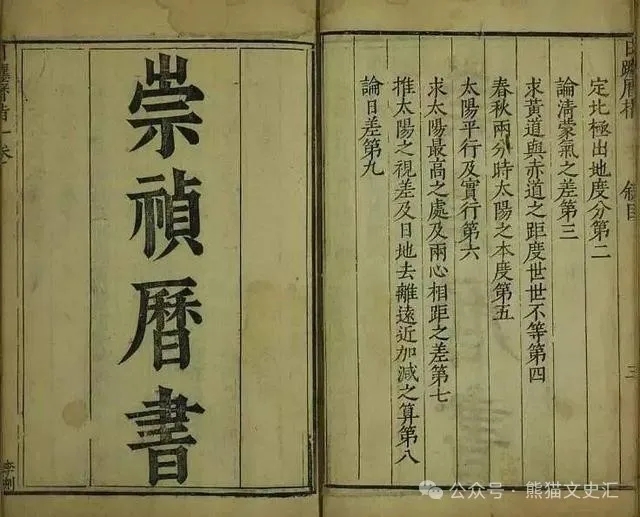 定北極出地度分第二
論清蒙氣之差第三
求黃道與赤道之距度世世不等第四
春秋兩分時太陽之本度第五
太陽平行及實行第六
求太陽最高之處及兩心相距之差第七
推太陽之視差及日地去離遠近加減之算第八
論日差第九
三
崇禎曆書
公众号·熊猫文史汇